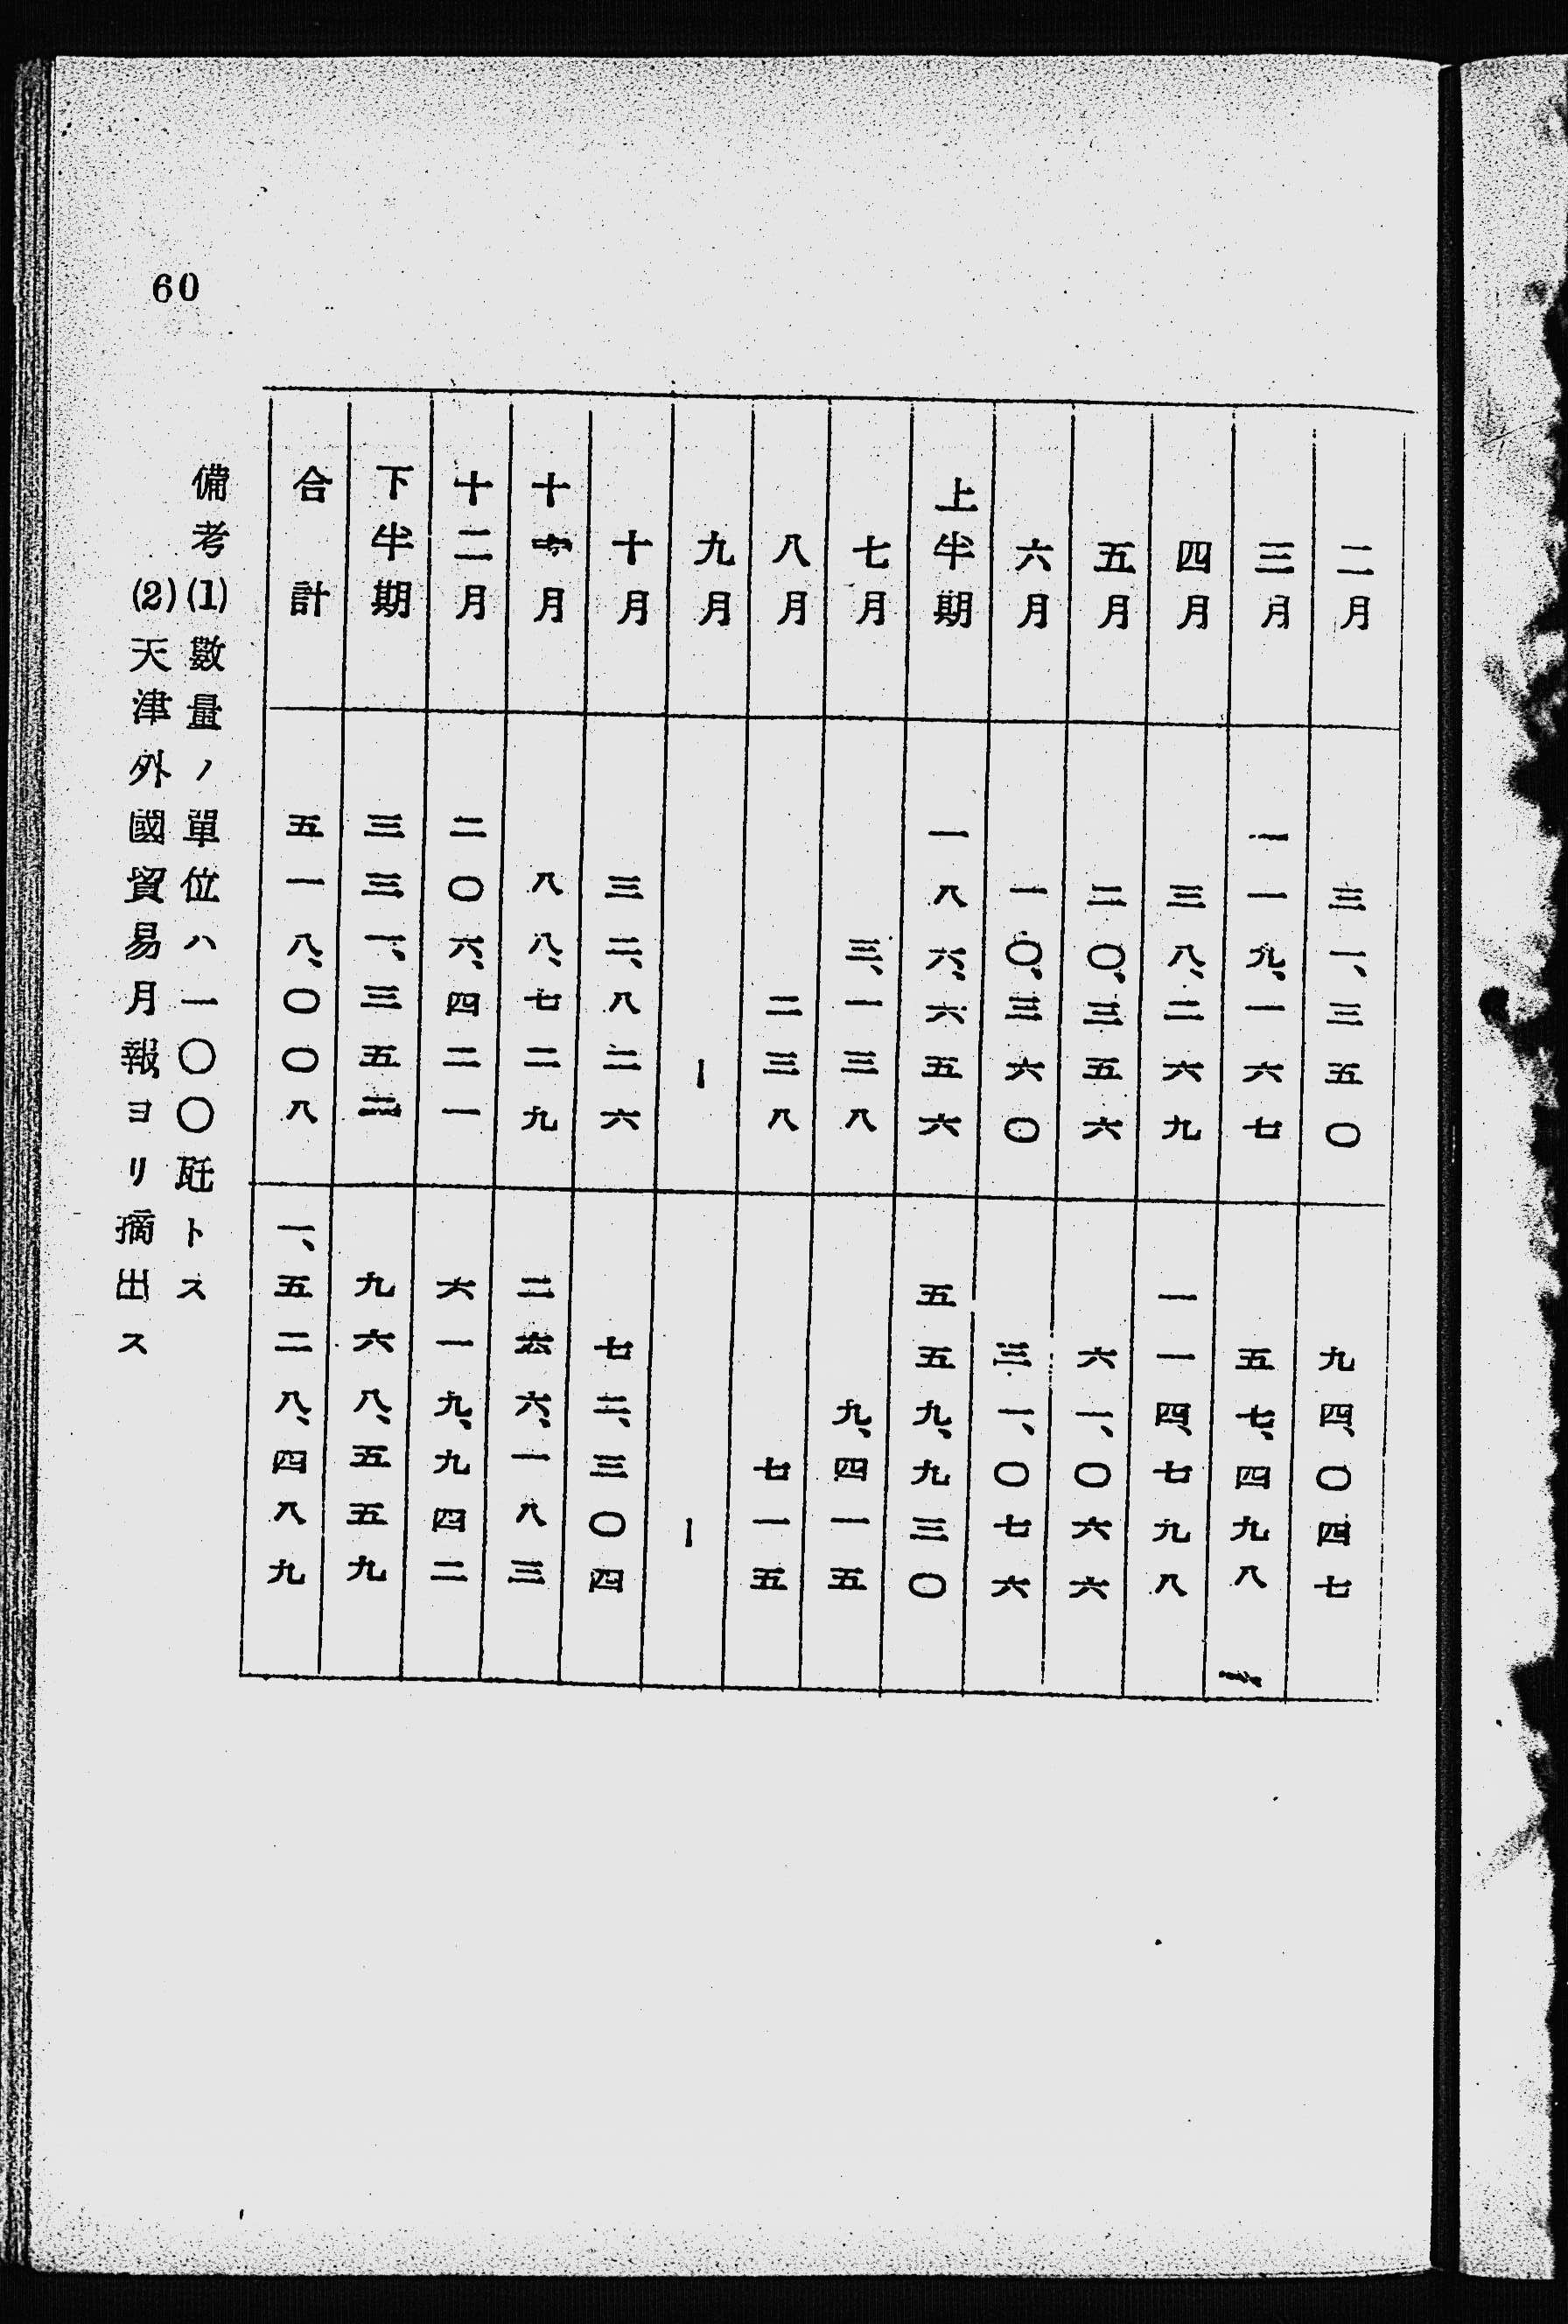 二月 三一、三五〇 九四、〇四七
三月 一一九、一六七 五七、四九八
四月 三八、二六九 一一四、七九八
五月 二〇、三五六 六一、〇六六
六月 一〇、三六〇 三一、〇七六
上半期 一八六、六五六 五五九、九三〇
七月 三、一三八 九、四一五
八月 二三八 七一五
九月 ー ー
十月 三二、八二六 七二、三〇四
十一月 八八、七二九 二六六、一八三
十二月 二〇六、四二一 六一九、九四二
下半期 三三一、三五二 九六八、五五九
合計 五一八、〇〇八 一、五二八、四八九
備考(1)數量ノ單位ハ一〇〇瓩トス
(2)天津外國貿易月報ヨリ摘出ス
60